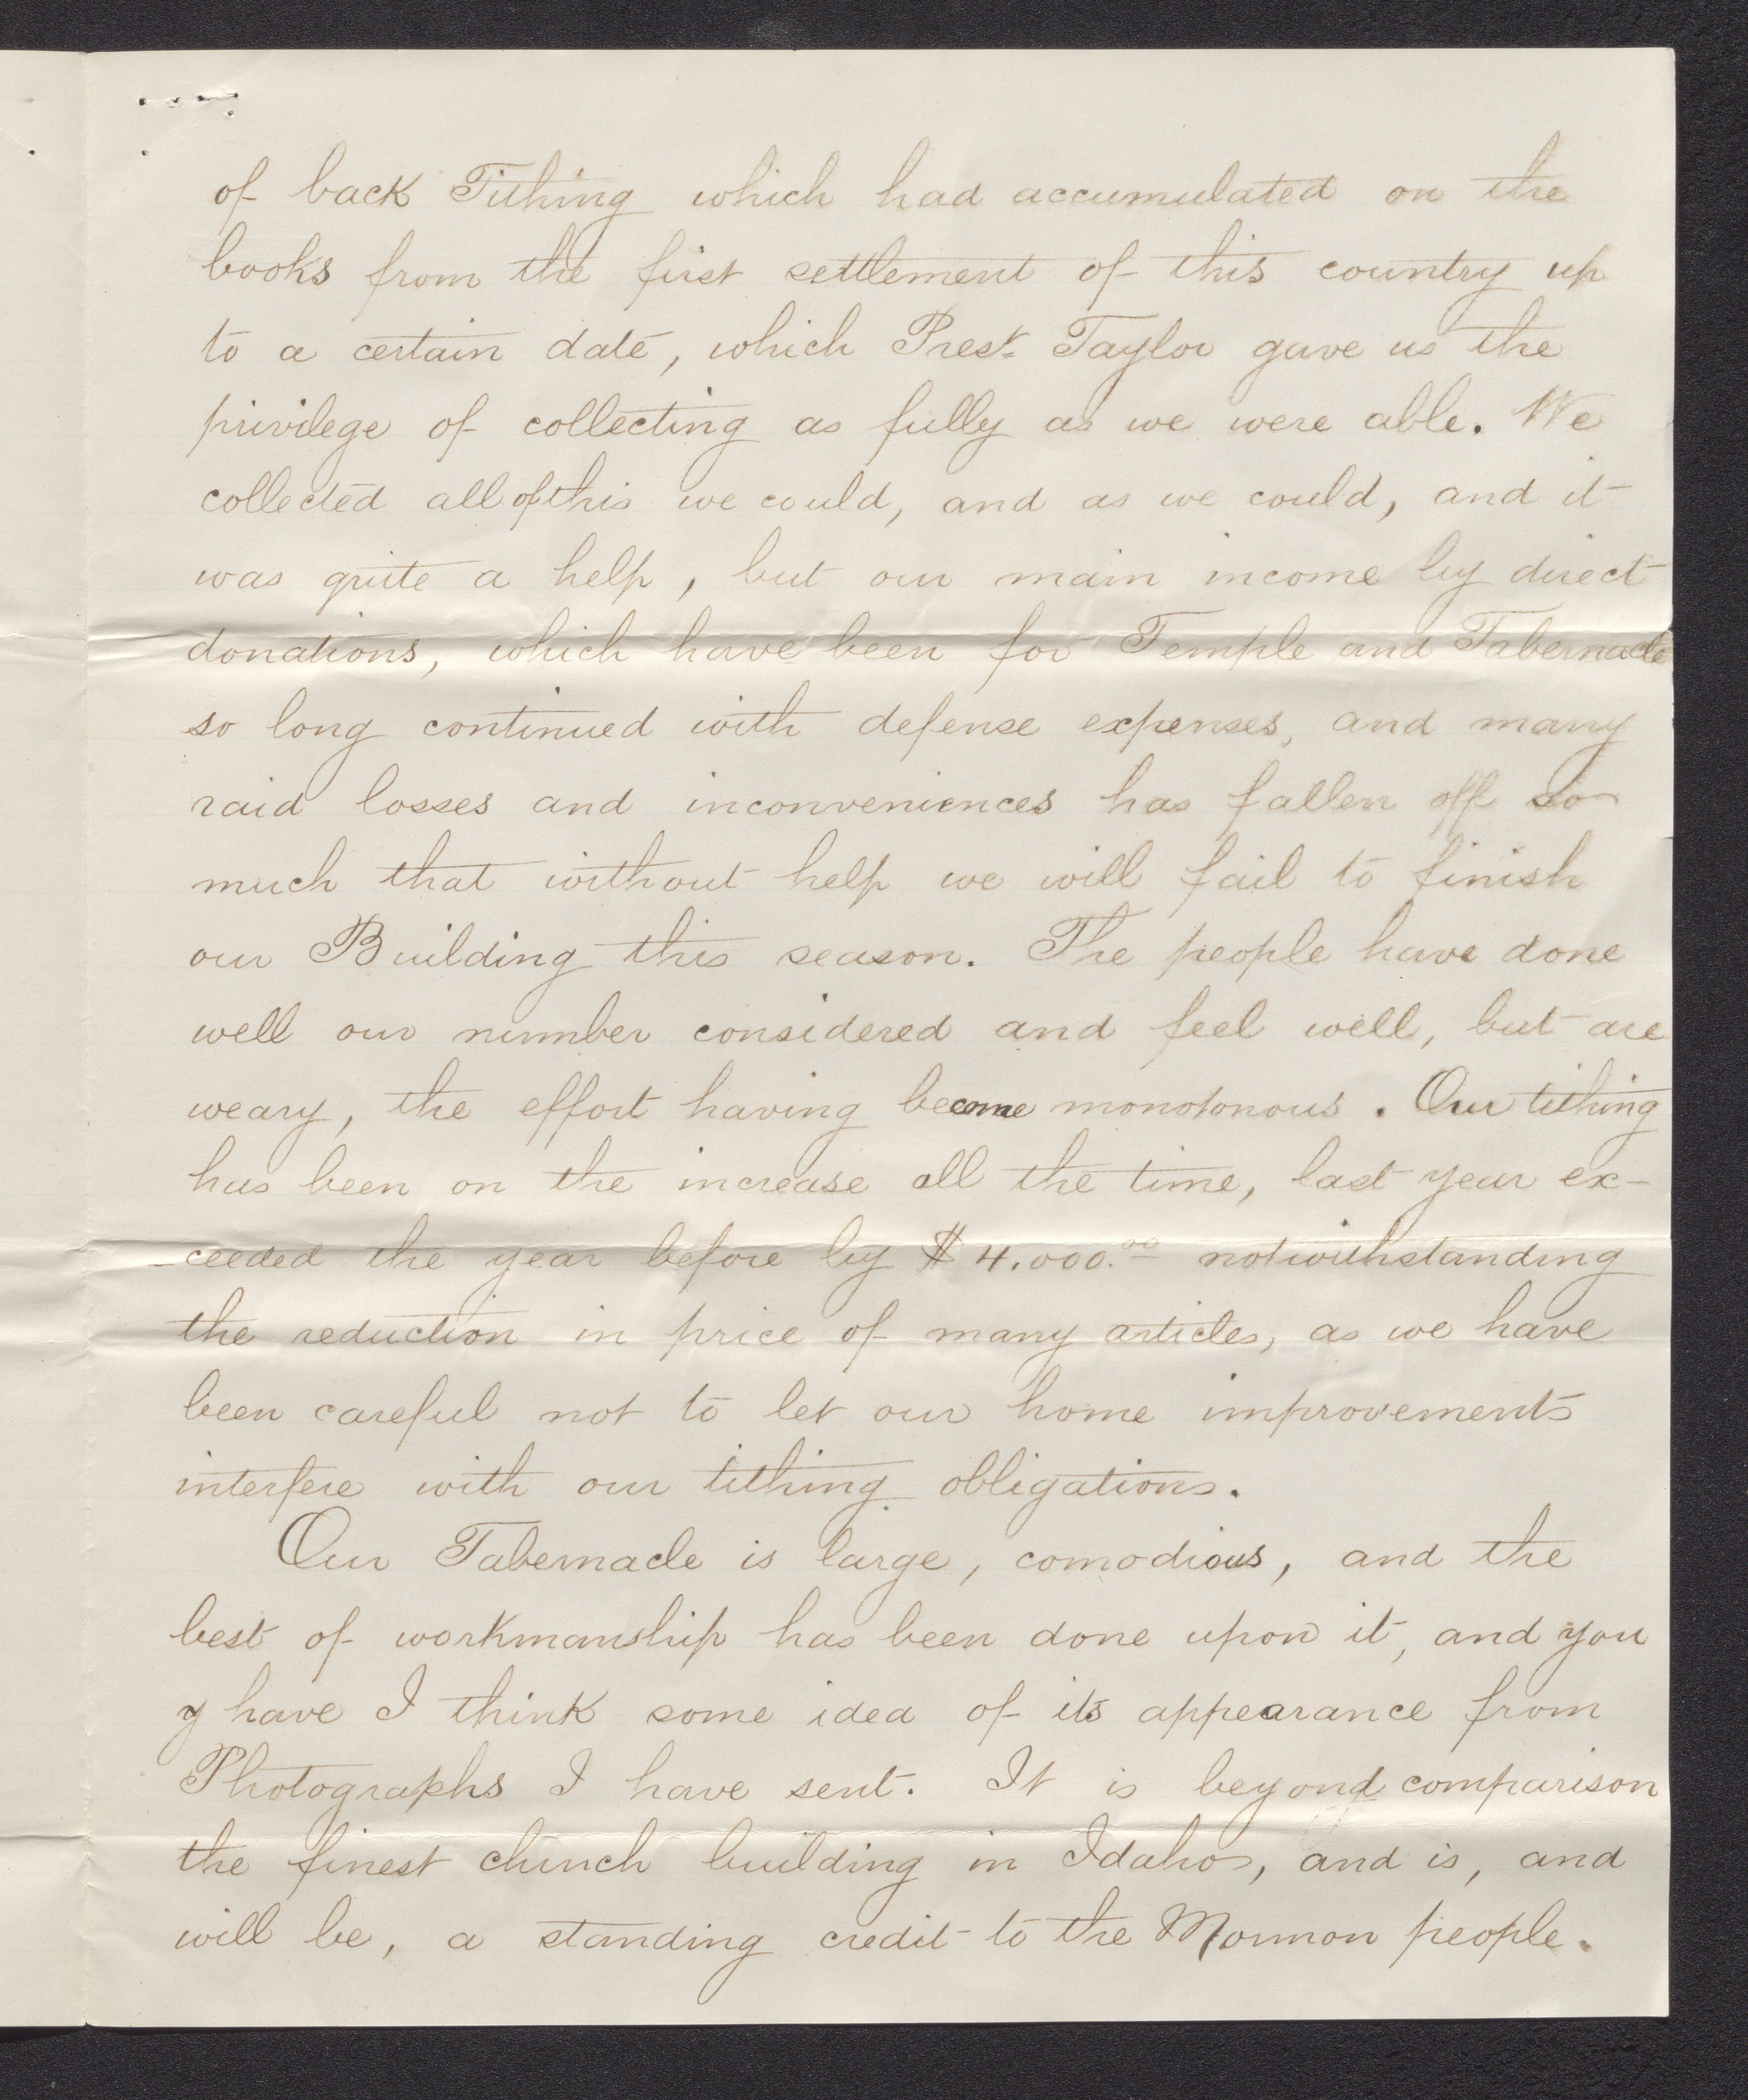 of back Tithing which had accumulated on the
books from the first settlement of this country up
to a certain date, which Prest. Taylor gave us the
privilege of collecting as fully as we were able. We
collected all of this we could, and as we could, and it
was quite a help, but our main income by direct
donations, which have been for Temple and Tabernacle
so long continued with defense expenses, and many
raid losses and inconveniences has fallen off so
much that without help we will fail to finish
our Building this season. The people have done
well our number considered and feel well, but are
weary, the effort having become monotonous. Our tithing
has been on the increase all the time, last year ex-
-ceeded the year before by $4.000.00 notwithstanding
the reduction in price of many articles, as we have
been careful not to let our home improvements
interfere with our tithing obligations.
Our Tabernacle is large, comodious, and the
best of workmanship has been done upon it, and you
y have I think some idea of its appearance from
Photographs I have sent. It is beyond comparison
the finest church building in Idaho, and is, and
will be, a standing credit to the Mormon people.